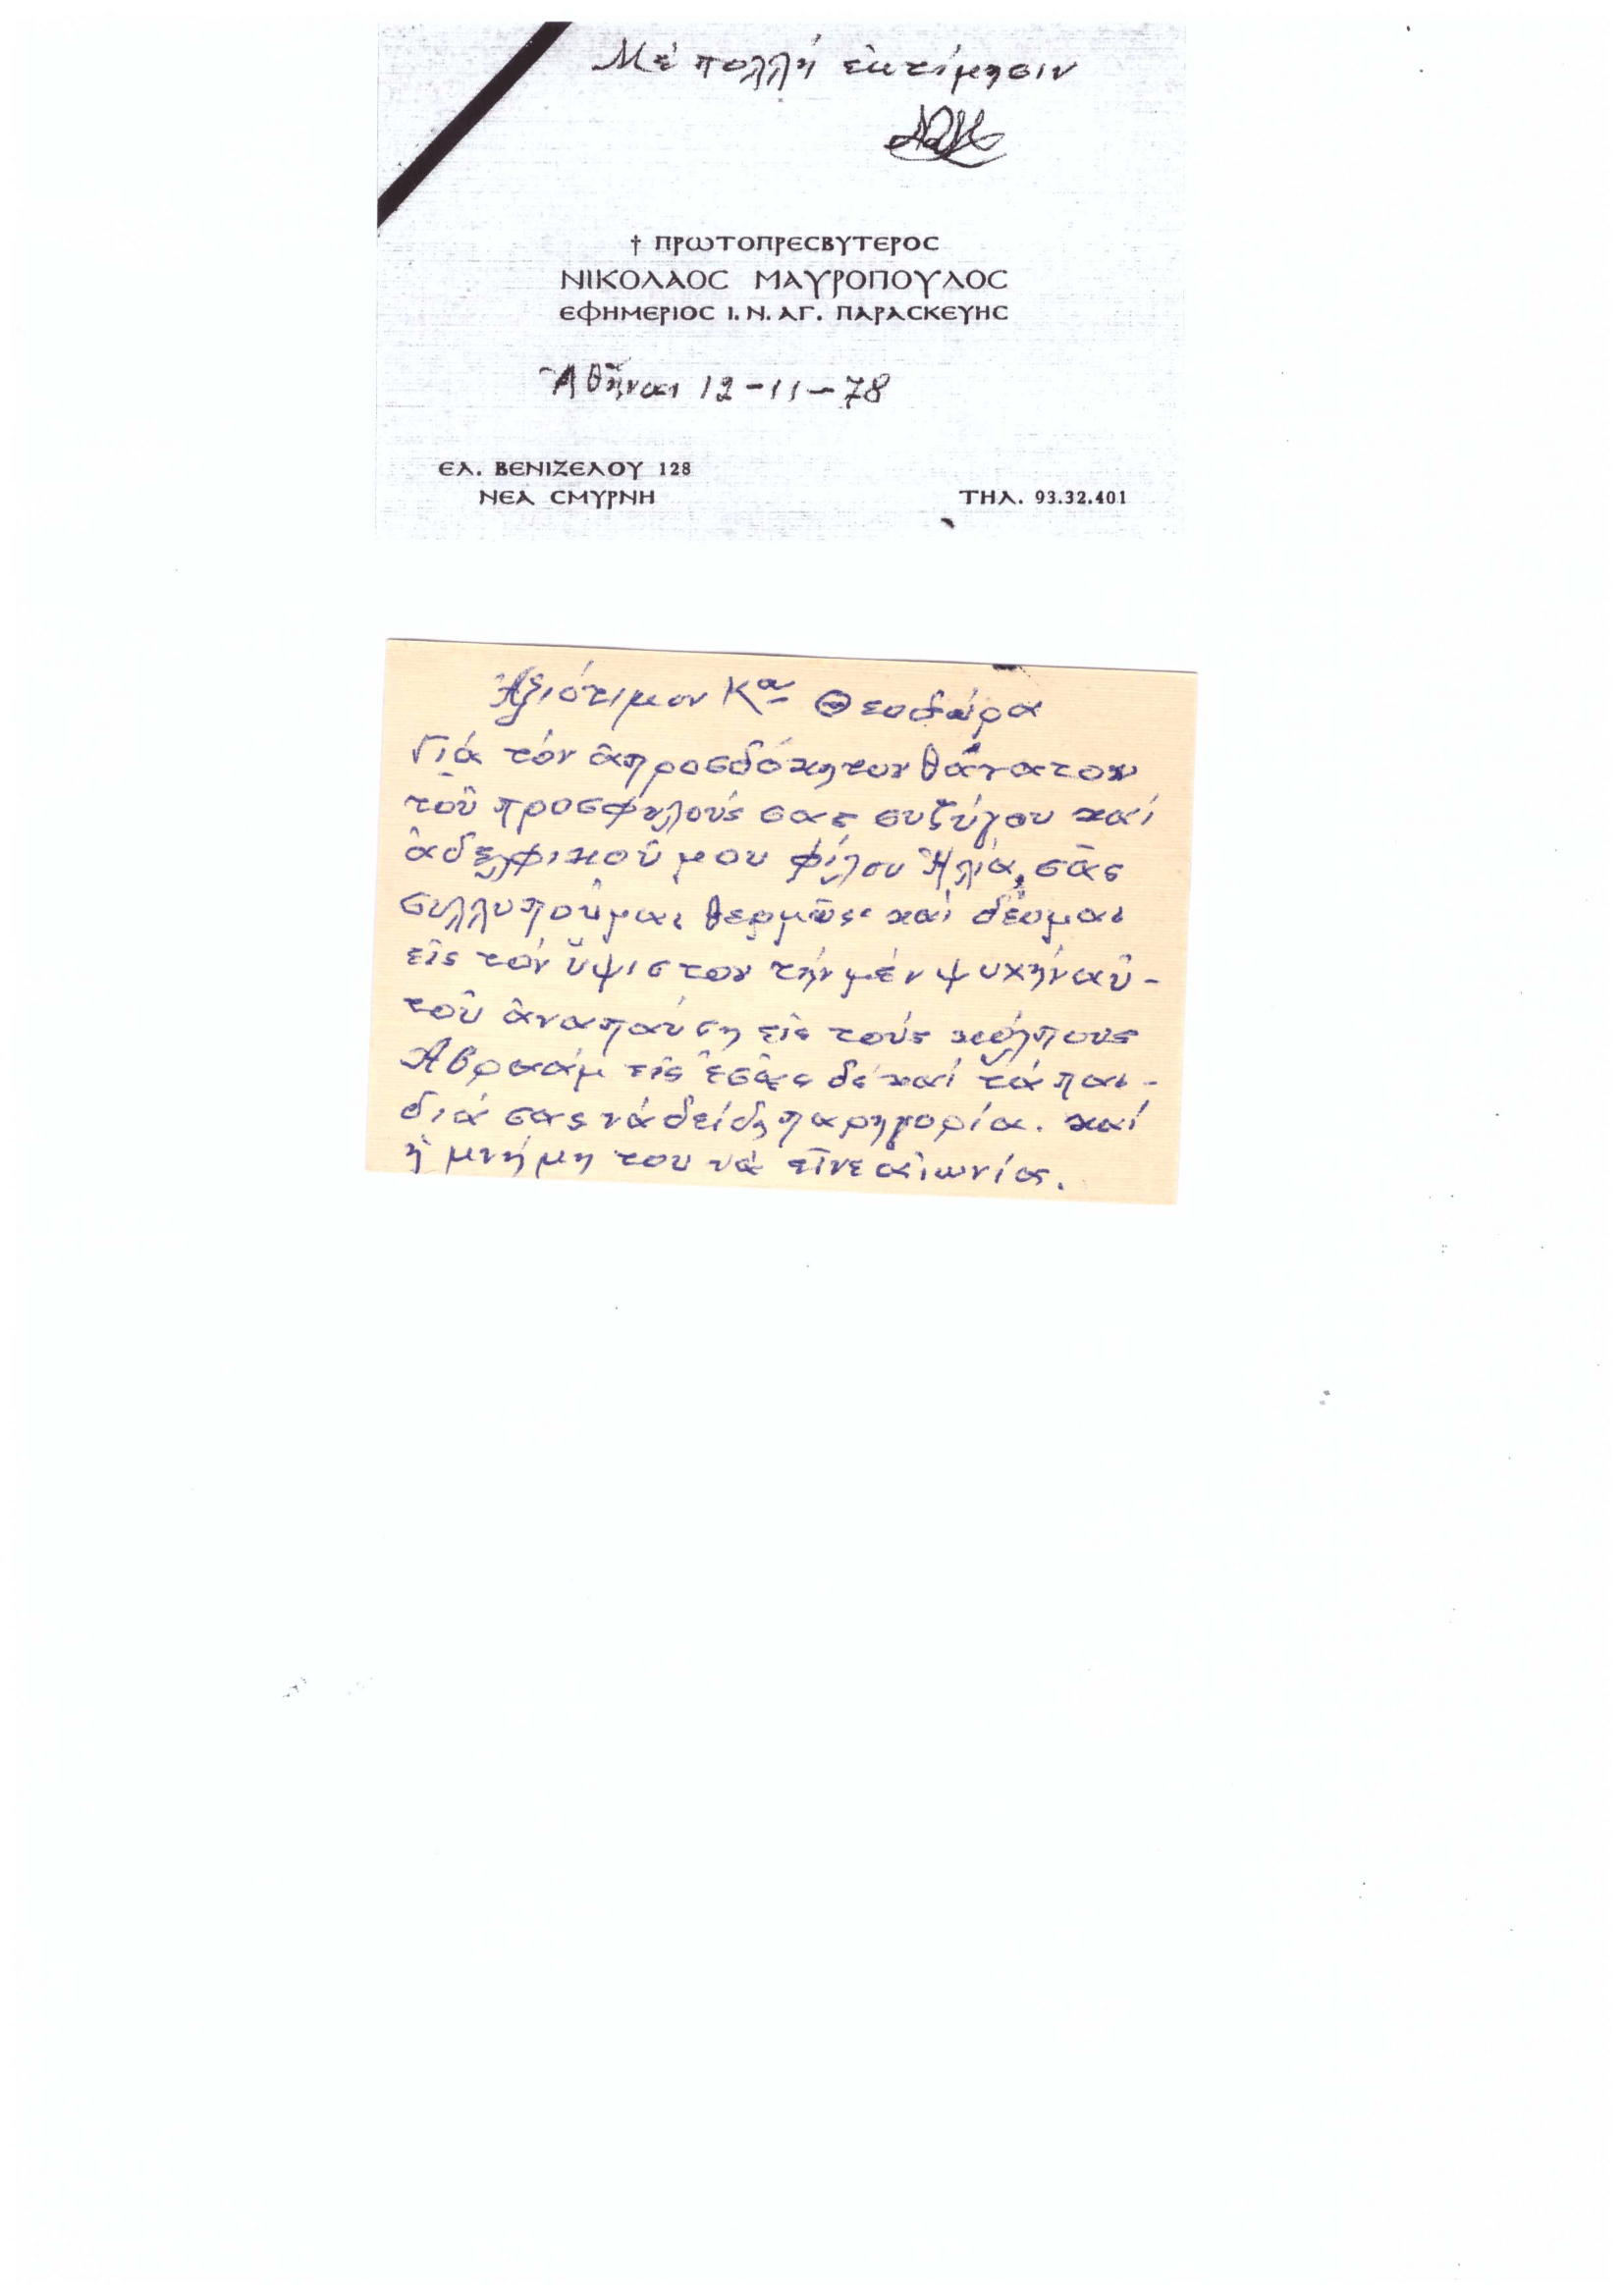 Μέ πολλή ἐκτίμησιν
† ΠΡΩΤΟΠΡΕСΒΥΤΕΡΟС
ΝΙΚΟΛΑΟС ΜΑΥΡΟΠΟΥΛΟС
ΕΦΗΜΕΡΙΟС Ι. Ν. ΑΓ. ΠΑΡΑСΚΕΥΗС
Ἀθῆναι 12-11-78
ΕΛ. ΒΕΝΙΖΕΛΟΥ 128
ΝΕΑ СΜΥΡΝΗ
ΤΗΛ. 93.32.401
Ἀξιότιμον Κα Θεοδώρα
Γιά τόν ἀπροσδόκητον θάνατον
τοῦ προσφιλούς σας συζύγου καί
ἀδελφικοῦ μου φίλου Ἠλία, σᾶς
συλλυποῦμαι θερμῶς καί δέομαι
εἰς τόν ὕψιστον τήν μέν ψυχήν αὐ-
τοῦ ἀναπαύση εἰς τούς κόλπους
Ἀβραάμ εἰς ἐσᾶς δέ καί τά παι-
διά σας νά δείδη παρηγορία. καί
ἡ μνήμη του νά εἶνε αἰωνία.